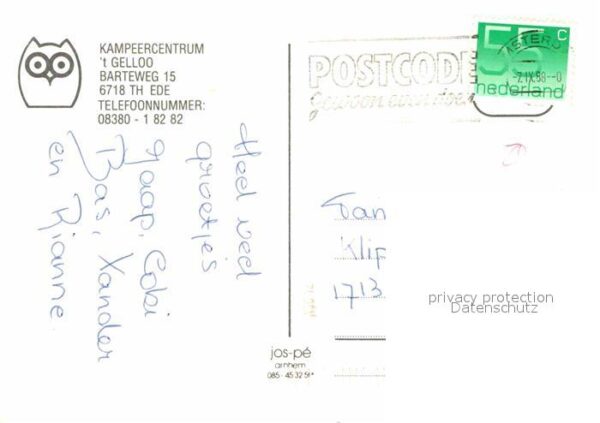 KAMPEERCENTRUM
't GELLOO
BARTEWEG 15
6718 TH EDE
TELEFOONNUMMER:
08380 - 1 82 82
Heel veel
groetjes
Jaap, Coki
Bas, Xander
en Rianne.
POSTCODE
gewoon even doen
55 c
nederland
Klip
1713
privacy protection
Datenschutz
jos-pé
arnhem
085 - 45 32 51*